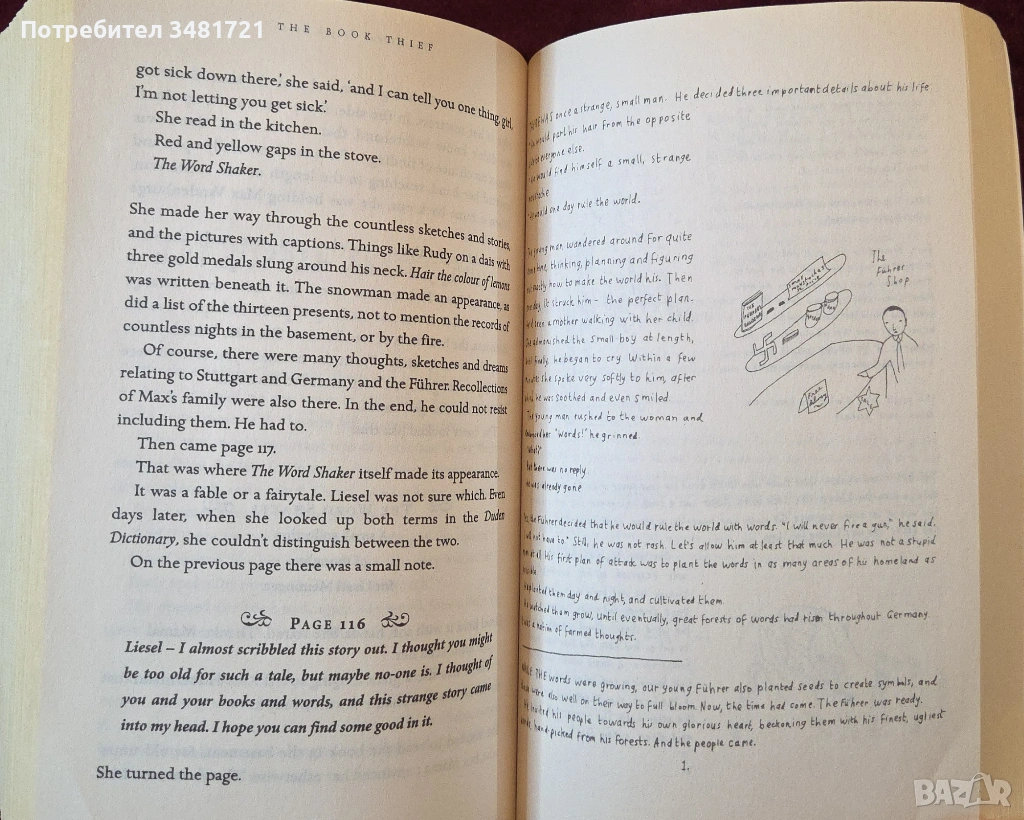 Потребител 3481721
THE BOOK THIEF
got sick down there,' she said, 'and I can tell you one thing, girl,
I'm not letting you get sick.'
She read in the kitchen.
Red and yellow gaps in the stove.
The Word Shaker.
She made her way through the countless sketches and stories,
and the pictures with captions. Things like Rudy on a dais with
three gold medals slung around his neck. Hair the colour of lemons
was written beneath it. The snowman made an appearance, as
did a list of the thirteen presents, not to mention the records of
countless nights in the basement, or by the fire.
Of course, there were many thoughts, sketches and dreams
relating to Stuttgart and Germany and the Führer. Recollections
of Max's family were also there. In the end, he could not resist
including them. He had to.
Then came page 117.
That was where The Word Shaker itself made its appearance.
It was a fable or a fairytale. Liesel was not sure which. Even
days later, when she looked up both terms in the Duden
Dictionary, she couldn't distinguish between the two.
On the previous page there was a small note.
PAGE 116
Liesel – I almost scribbled this story out. I thought you might
be too old for such a tale, but maybe no-one is. I thought of
you and your books and words, and this strange story came
into my head. I hope you can find some good in it.
She turned the page.
WAS once a strange, small man. He decided three important details about his life
would part his hair from the opposite
everyone else.
would find himself a small, strange
moustache.
would one day rule the world.
young man wandered around for quite
time, thinking, planning and figuring
exactly how to make the world his. Then
day, it struck him – the perfect plan.
seen a mother walking with her child.
admonished the small boy at length,
finally, he began to cry. Within a few
she spoke very softly to him, after
he was soothed and even smiled.
The young man rushed to the woman and
her "Words!" he grinned.
"What?"
But there was no reply
He was already gone
The
Führer
Shop
the Führer decided that he would rule the world with words. "I will never fire a gun," he said.
not have to." Still, he was not rash. Let's allow him at least that much. He was not a stupid
man at all. His first plan of attack was to plant the words in as many areas of his homeland as
planted them day and night, and cultivated them.
watched them grow, until eventually, great forests of words had risen throughout Germany
was a nation of farmed thoughts.
THE words were growing, our young Führer also planted seeds to create symbols, and
were also well on their way to full bloom. Now, the time had come. The Führer was ready.
invited his people towards his own glorious heart, beckoning them with his finest, ugliest
words, hand-picked from his forests. And the people came.
1.
BAZAR